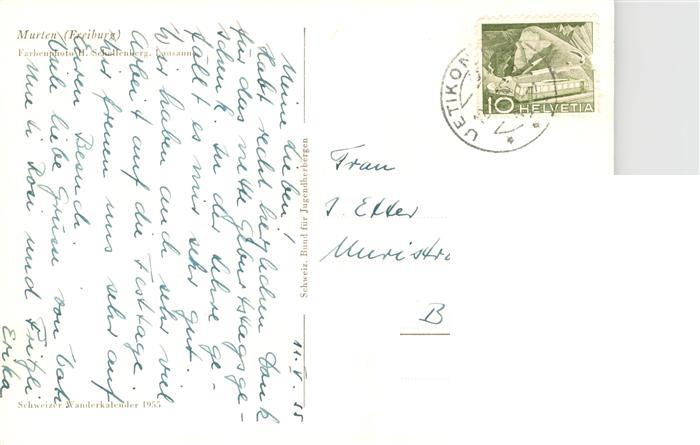 Murten (Freiburg)
Farbenphoto H. Schellenberg, Lausanne
Meine Lieben!
Habt recht herzlichen Dank
für das nette Geburtstagsge-
schenk. In der Lehre ge-
fällt es mir sehr gut.
Wir haben auch sehr viel
Arbeit auf die Festtage.
Wir freuen uns sehr auf
Euren Besuch.
Viele liebe Grüsse von
und Fritzli
Erika
11. V. 55
Schweizer Wanderkalender 1955
Schweiz. Bund für Jugendherbergen
UETIKON
10 HELVETIA
Frau
J. Etter
Muristra
B